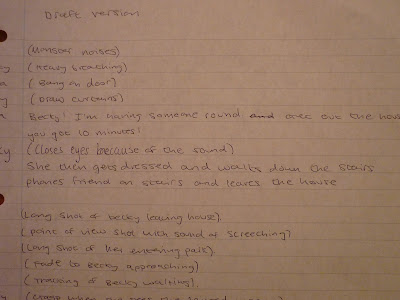 Draft version
(Monster noises)
(Heavy breathing)
(Bang on door)
(Draw curtains)
Becky! I'm having someone round and out the house
you got 10 minutes!
(Closes eyes because of the sound)
She then gets dressed and walks down the stairs
phones friend on stairs and leaves the house
(Long shot of becky leaving house)
(point of view shot with sound of screeching)
(Long shot of her entering park)
(fade to Becky approaching)
(tracking of Becky walking)